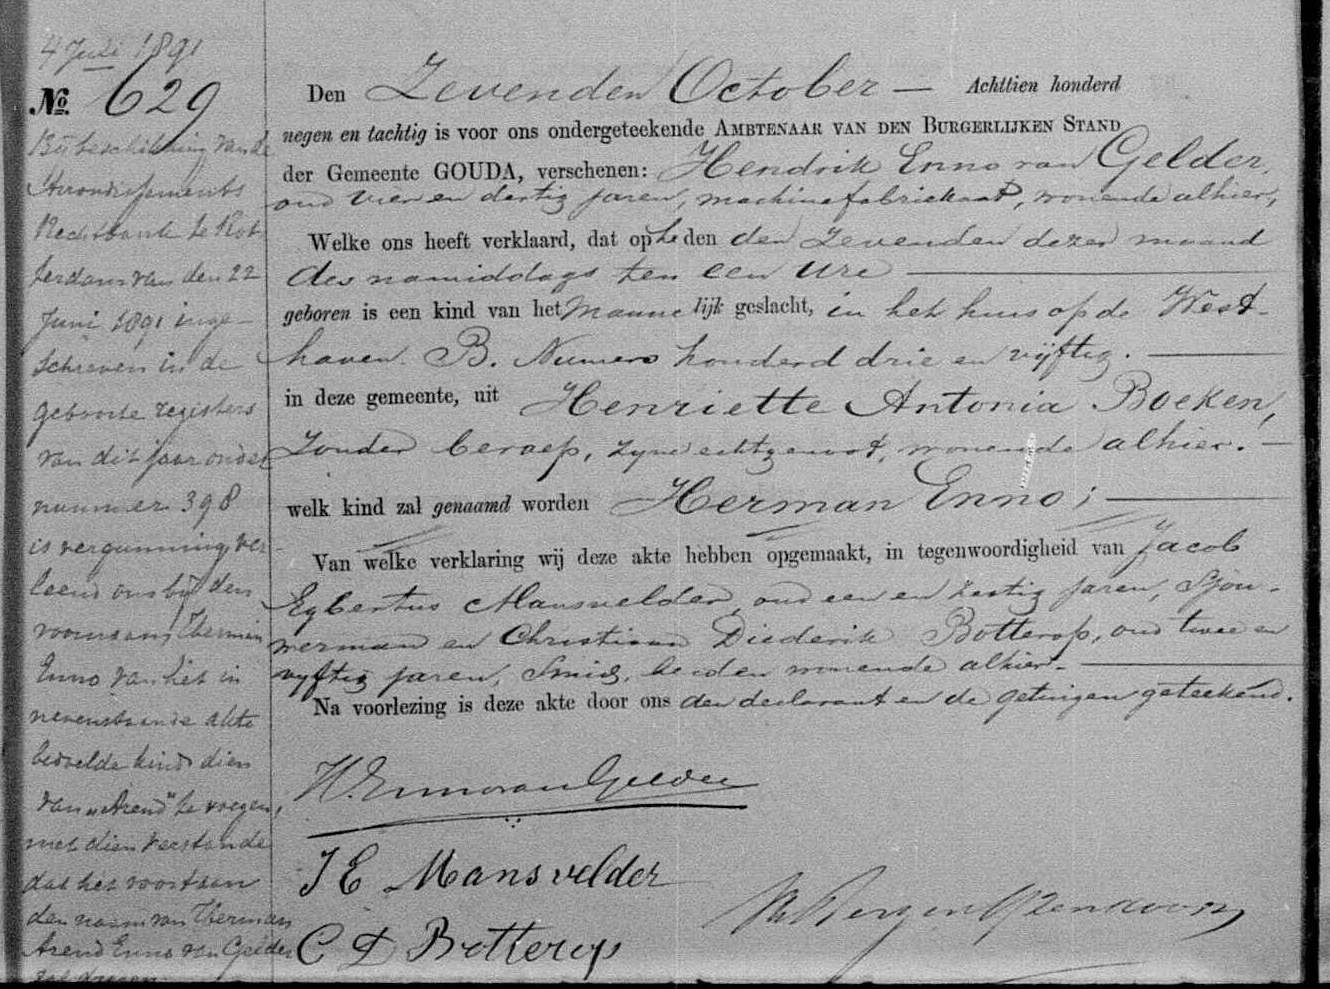 4 Juli 1891
No. 629
Bij beschikking van de
Arrondissements
Rechtbank te Rot-
terdam van den 22
Juni 1891 inge-
schreven in de
geboorte registers
van dit jaar onder
nummer 398
is vergunning ver-
leend om bij den
voornaam Herman
Enno van het in
nevenstaande akte
bedoelde kind dien
van "Arend" te voegen,
met dien verstande
dat het voortaan
den naam van Herman
Arend Enno van Gelder
zal dragen.
Den Zevenden October — Achttien honderd
negen en tachtig is voor ons ondergeteekende AMBTENAAR VAN DEN BURGERLIJKEN STAND
der Gemeente GOUDA, verschenen: Hendrik Enno van Gelder,
oud vier en dertig jaren, machinefabriekant, wonende alhier,
Welke ons heeft verklaard, dat op heden den zevenden dezer maand
des namiddags ten een ure —
geboren is een kind van het mannelijk geslacht, in het huis op de West-
haven B. Numero honderd drie en vijftig. —
in deze gemeente, uit Henriette Antonia Boeken,
zonder beroep, zyne echtgenoot, wonende alhier. —
welk kind zal genaamd worden Herman Enno; —
Van welke verklaring wij deze akte hebben opgemaakt, in tegenwoordigheid van Jacob
Egbertus Mansvelder, oud een en zestig jaren, Sjou-
werman en Christiaan Diederik Botterop, oud twee en
vyftig jaren, Smid, beiden wonende alhier. —
Na voorlezing is deze akte door ons den declarant en de getuigen geteekend.
H. Enno van Gelder
J E Mansvelder
C D Botterop
Bergen IJzendoorn